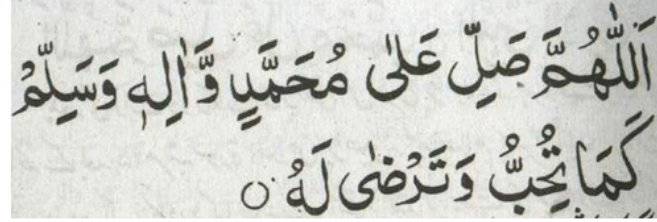 اَللّٰهُمَّ صَلِّ عَلٰى مُحَمَّدٍ وَّاٰلِهٖ وَسَلِّمْ
كَمَا تُحِبُّ وَتَرْضٰى لَهُ ○